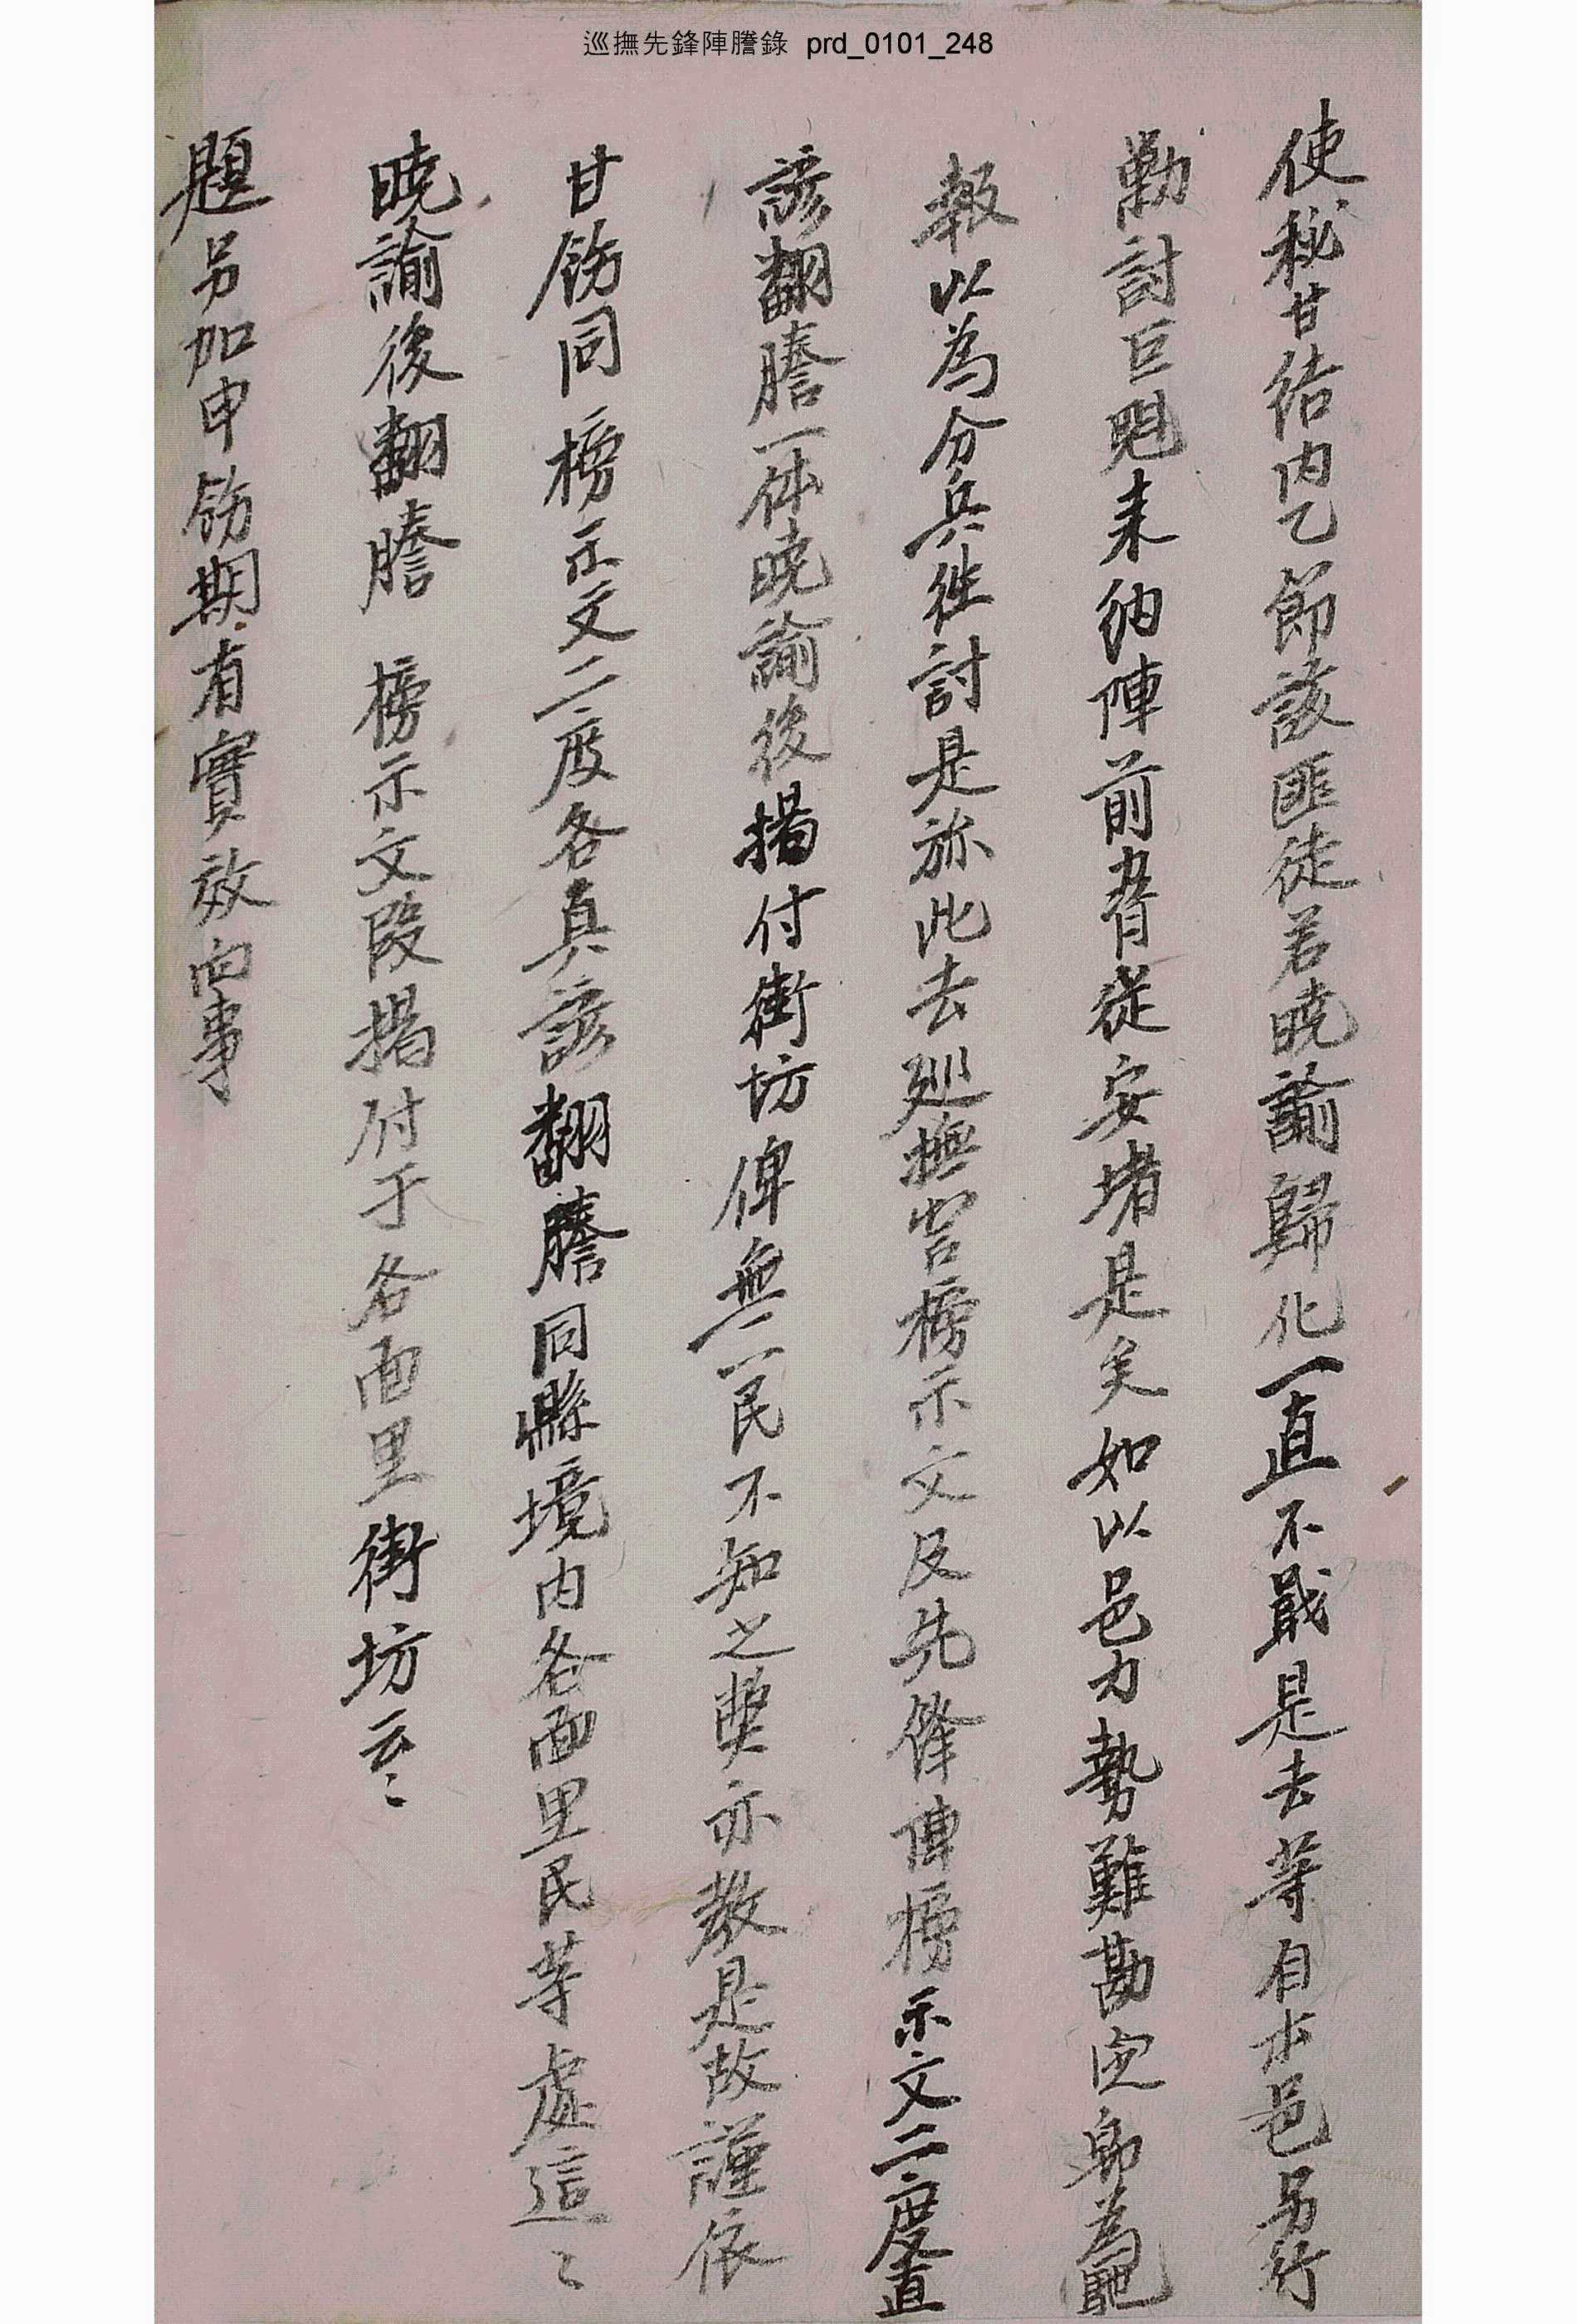 巡撫先鋒陣謄錄 prd_0101_248
使秘甘結內乙節該匪徒若曉諭歸化一直不戢是去等自本邑另行
勦討巨魁來納陣前脅從安堵是矣如以邑力勢難勘定卽爲馳
報以爲分兵往討是旀此去廵撫營榜示文及先鋒陣榜示文二度直
諺翻謄一体曉諭後揭付街坊俾無一民不知之弊亦敎是故謹依
甘飭同榜示文二度各眞諺翻謄同縣境內各面里民等處這〻
曉諭後翻謄 榜示文段揭付于各面里街坊云〻
題另加申飭期有實效向事